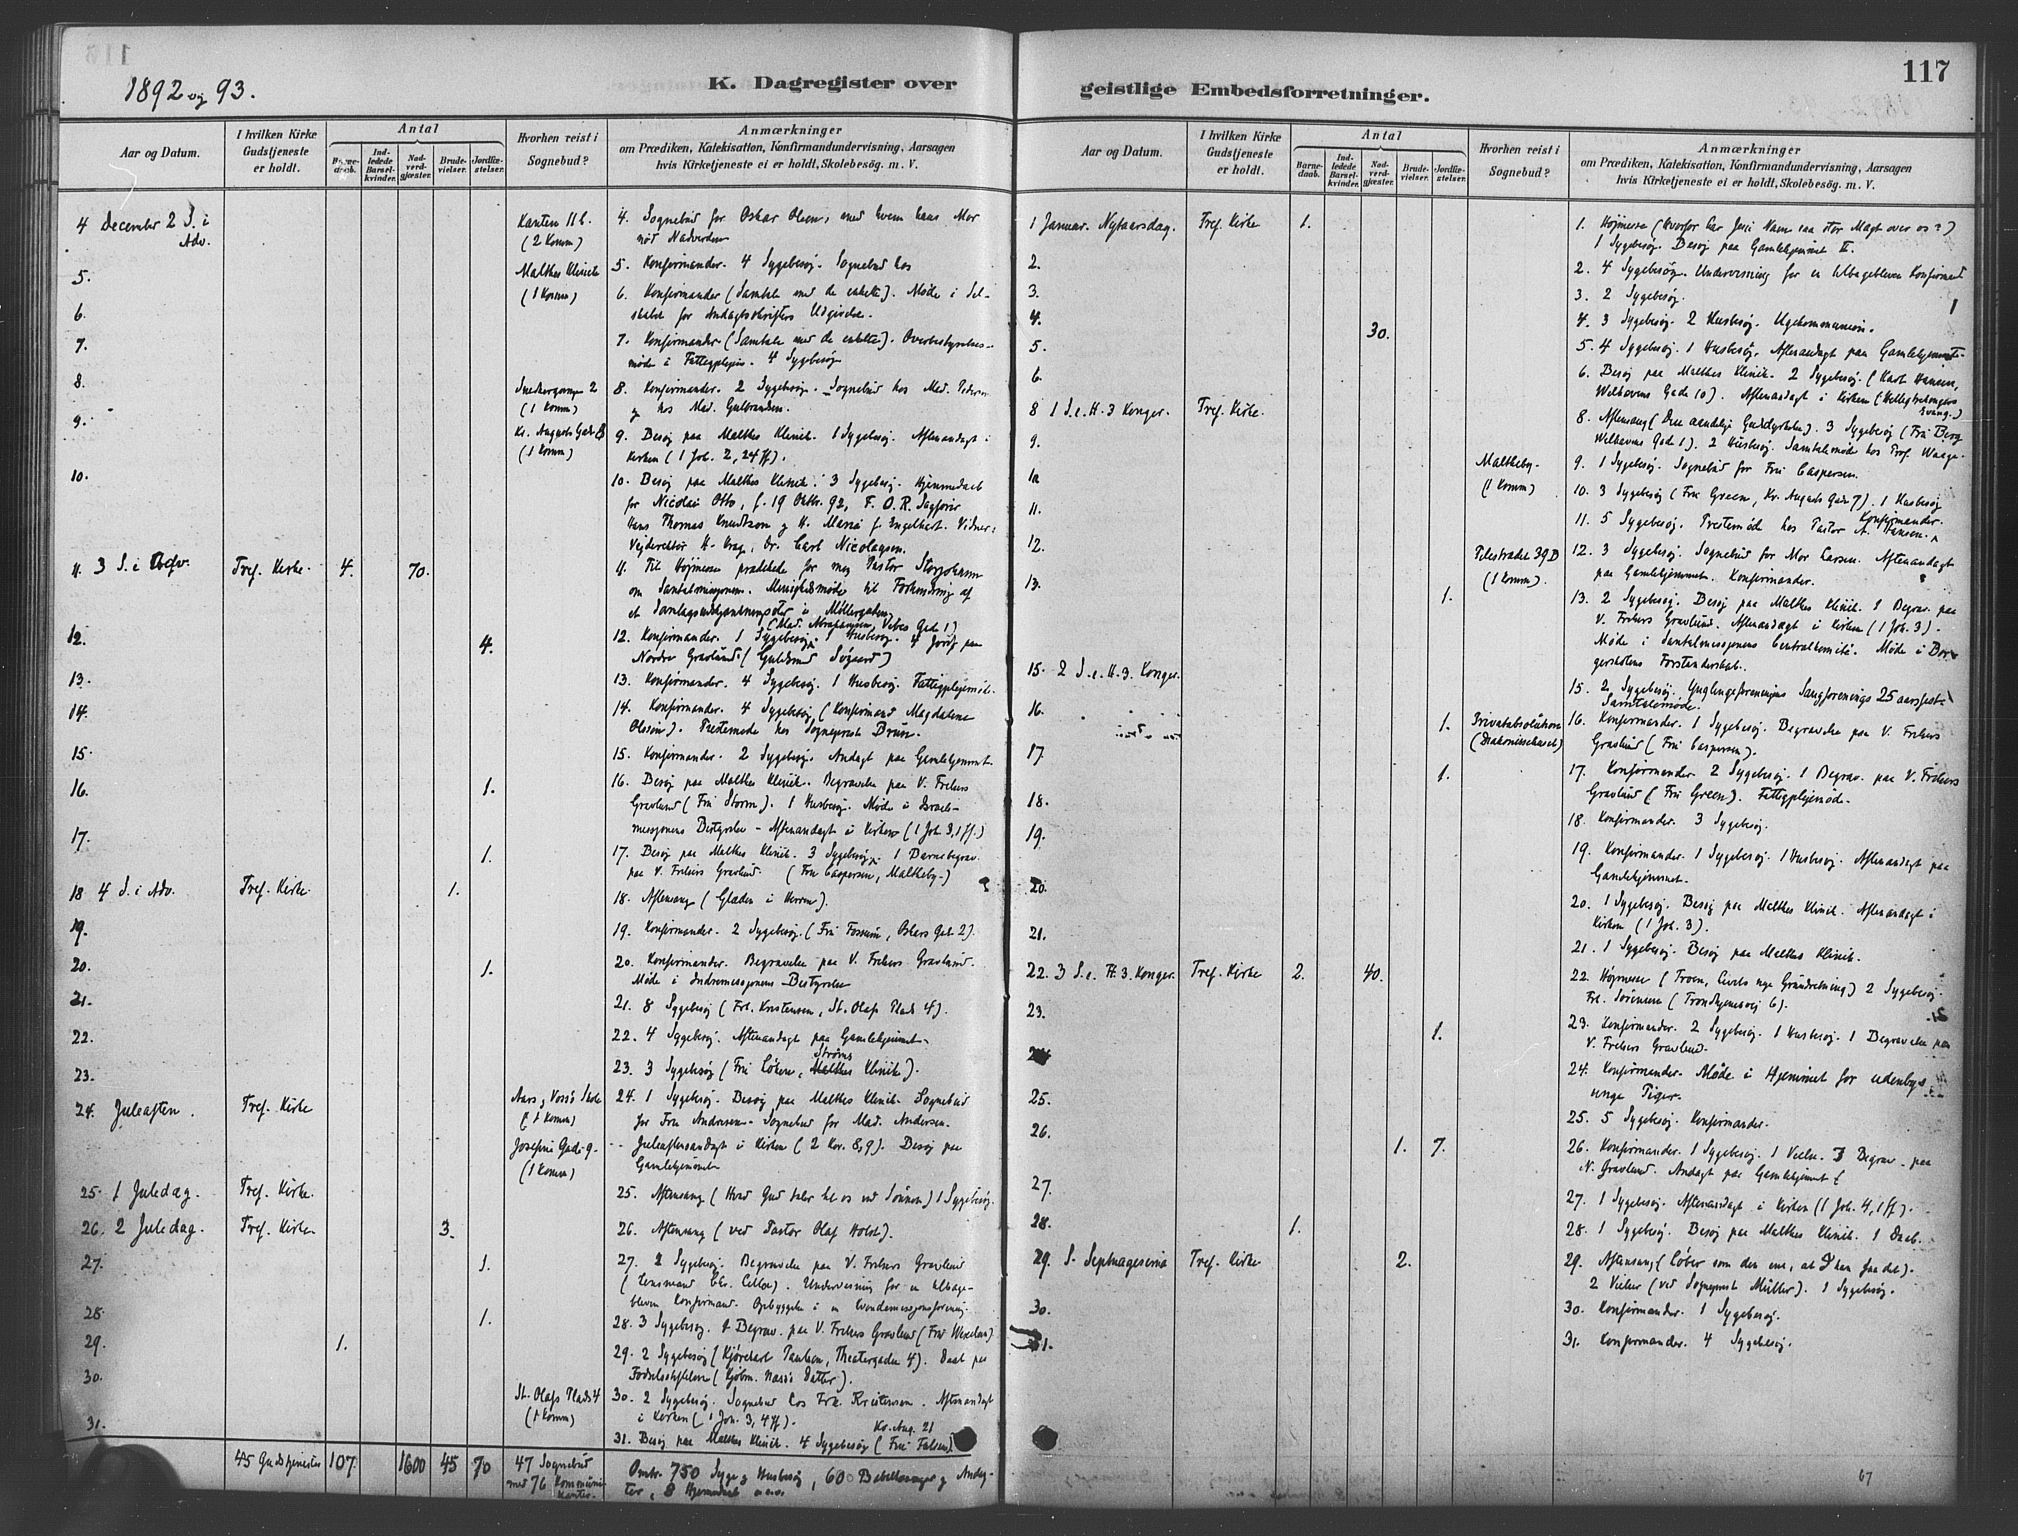 117
1892 og 93.
K. Dagregister over
geistlige Embedsforretninger.
Aar og Datum.
I hvilken Kirke Gudstjeneste er holdt.
Antal
Barne-daab.
Ind-ledede Barsel-kvinder.
Nad-verd-gjæster.
Brude-vielser.
Jordfæ-stelser.
Hvorhen reist i Sognebud?
Anmærkninger
om Prædiken, Katekisation, Konfirmandundervisning, Aarsagen
hvis Kirketjeneste ei er holdt, Skolebesøg. m. V.
4 December 2 S. i Adv.
(2 Komm)
4. Sognebud for Oskar Olsen, med hvem hans Mor
nød Nadverden
5.
Malthes Klinik
(1 Komm)
5. Konfirmander. 4 Sygebesøg. Sognebud hos
6.
6. Konfirmander (Samtale med de enkelte). Møde i Sel-
skabet for Andagtsskrifters Udgivelse.
7.
7. Konfirmander (Samtale med de enkelte). Overbestyrelses-
møde i Fattigplejen. 4 Sygebesøg
8.
Snedkergangen 2
(1 Komm)
8. Konfirmander. 2 Sygebesøg. Sognebud hos Mad. Pedersen
og hos Mad. Gulbrandsen.
9.
Kr. Augusts Gade 8
(1 Komm)
9. Besøg paa Malthes Klinik. 1 Sygebesøg. Aftenandagt i
Kirken (1 Joh. 2, 24 ff).
10.
10. Besøg paa Malthes Klinik. 3 Sygebesøg. Hjemmedaab
for Nicolai Otto, f. 19 Oktbr. 92, F. O. R. Sagfører
Hans Thomas Knudtzon og H. Maria f. Engelhart. Vidner:
Vejdirektør H. Krag, Dr. Carl Nicolaysen.
11. 3 S. i Adv.
Tref. Kirke.
4.
70.
11. Til Højmesse prædikede for mig Pastor Storjohann
om Santalmissionen. Menighedsmøde til Forhindring af
et i Møllergaden
(Mad. Abrahamsen, Vibes Gade 1)
12.
4.
12. Konfirmander. 1 Sygebesøg. 1 Husbesøg. 4 Jordf. paa
Nordre Gravlund (Guldsmed Søgaard)
13.
13. Konfirmander. 4 Sygebesøg. 1 Husbesøg. Fattigplejemøde.
14.
14. Konfirmander. 4 Sygebesøg (Konfirmand Magdalene
Olsson). Prestemøde hos Sogneprest Bruun.
15.
15. Konfirmander. 2 Sygebesøg. Andagt paa Gamlehjemmet.
16.
1.
16. Besøg paa Malthes Klinik. Begravelse paa V. Frelsers
Gravlund (Fru Storm). 1 Husbesøg. Møde i Israels-
missionens Bestyrelse. Aftenandagt i Kirken (1 Joh. 3, 1 ff.)
17.
1.
17. Besøg paa Malthes Klinik. 3 Sygebesøg. 1 Barnebegrav.
paa V. Frelsers Gravlund. (Fru Caspersen, Maltheby.)
18 4 S. i Adv.
Tref. Kirke.
1.
18. Aftensang (Glæden i Herren).
19.
19. Konfirmander. 2 Sygebesøg. (Fru Fossum, Oskars Gade 2).
20.
1.
20. Konfirmander. Begravelse paa V. Frelsers Gravlund.
Møde i Indremissionens Bestyrelse
21.
21. 8 Sygebesøg (Frk. Kristensen, St. Olafs Plads 4).
22.
22. 4 Sygebesøg. Aftenandagt paa Gamlehjemmet.
23.
Strøms
23. 3 Sygebesøg (Fru Løken, Malthes Klinik).
24. Juleaften.
Tref. Kirke
Aars og Voss's Skole
(1 Komm)
24. 1 Sygebesøg. Besøg paa Malthes Klinik. Sognebud
for Fru Andresen. Sognebud for Mad. Andersen.
Josefine Gade 9.
(1 Komm)
Juleaftensandagt i Kirken (2 Kor. 8, 9). Besøg paa
Gamlehjemmet
25. 1 Juledag.
Tref. Kirke.
25. Aftensang (Hvad Gud taler til os ved Sønnen) 1 Sygebesøg.
26. 2 Juledag.
Tref. Kirke.
3.
26. Aftensang (ved Pastor Olaf Holst).
27.
1.
27. 2 Sygebesøg. Begravelse paa V. Frelsers Gravlund
(Lensmand Chr. ). Undervisning for en tilbage-
bleven Konfirmand. Opbyggelse i en Kvindemissionsforening.
28.
1.
28. 3 Sygebesøg. 1 Begrav. paa V. Frelsers Gravlund (Fru Wexelsen)
29.
1.
29. 2 Sygebesøg (Kjørekarl Paulsen, Theatergaden 4). Daab paa
Fødselsstiftelsen (Kjøbm. Datter).
30.
St. Olafs Plads 4
(1 Komm)
30. 2 Sygebesøg. Sognebud hos Frk. Kristensen. Aftenandagt
i Kirken (1 Joh. 3, 4 ff).
31.
Kr. Aug. 21
31. Besøg paa Malthes Klinik. 4 Sygebesøg (Fru Falsen).
45 Gudstjenester
107
1600
45
70
47 Sognebud
med 76 Kommuni-
kanter.
Omtr. 750 Syge og Husbesøg, 60 Bibellæsninger og Andag-
ter, 8 Hjemmedaab
Aar og Datum.
I hvilken Kirke Gudstjeneste er holdt.
Antal
Barne-daab.
Ind-ledede Barsel-kvinder.
Nad-verd-gjæster.
Brude-vielser.
Jordfæ-stelser.
Hvorhen reist i Sognebud?
Anmærkninger
om Prædiken, Katekisation, Konfirmandundervisning, Aarsagen
hvis Kirketjeneste ei er holdt, Skolebesøg. m. V.
1 Januar. Nytaarsdag.
Tref. Kirke
1.
1. Højmesse (Hvorfor har Jesu Navn saa stor Magt over os?)
1 Sygebesøg. Besøg paa Gamlehjemmet II.
2.
2. 4 Sygebesøg. Undervisning for en tilbagebleven Konfirmand
3.
3. 2 Sygebesøg.
4.
30.
4. 3 Sygebesøg. 2 Husbesøg. Ugekommunion.
5.
5. 4 Sygebesøg. 1 Husbesøg. Aftenandagt paa Gamlehjemmet.
6.
6. Besøg paa Malthes Klinik. 2 Sygebesøg (Karl Hansen,
Welhavens Gade 10). Aftenandagt i Kirken (Helligtrekongers
Evang.)
8 1 S. e. H. 3 Konger.
Tref. Kirke.
8. Aftensang (Den aandelige Gudsdyrkelse). 3 Sygebesøg (Fru Berg
Welhavens Gade 1). 2 Husbesøg. Samtalemøde hos Prof. Waage.
9.
Maltheby.
(1 Komm)
9. 1 Sygebesøg. Sognebud for Fru Caspersen.
10.
10. 3 Sygebesøg (Fru Green, Kr. Augusts Gade 7). 1 Husbesøg
11.
Konfirmander.
11. 5 Sygebesøg. Prestemøde hos Pastor A. Hansen.
12.
Pilestrædet 39 D
(1 Komm).
12. 3 Sygebesøg. Sognebud for Mor Larsen. Aftenandagt
paa Gamlehjemmet. Konfirmander.
13.
1.
13. 2 Sygebesøg. Besøg paa Malthes Klinik. 1 Begrav. paa
V. Frelsers Gravlund. Aftenandagt i Kirken (1 Joh. 3).
Møde i Santalmissionens Centralkomité. Møde i Bor-
gerskolens Forstanderskab.
15. 2 S. e. H. 3. Konger.
15. 2 Sygebesøg. Ynglingeforeningens Sangforenings 25 aarsfest.
Samtalemøde.
16.
1.
Privatabsolution
(Diakonissehuset)
16. Konfirmander. 1 Sygebesøg. Begravelse paa V. Frelsers
Gravlund (Fru Caspersen).
17.
1.
17. Konfirmander. 2 Sygebesøg. 1 Begrav. paa V. Frelsers
Gravlund (Fru Green). Fattigplejemøde.
18.
18. Konfirmander. 3 Sygebesøg.
19.
19. Konfirmander. 1 Sygebesøg. 1 Husbesøg. Aftenandagt paa
Gamlehjemmet.
20.
20. 1 Sygebesøg. Besøg paa Malthes Klinik. Aftenandagt i
Kirken (1 Joh. 3).
21.
21. 1 Sygebesøg. Besøg paa Malthes Klinik.
22. 3 S. e. H. 3. Konger.
Tref. Kirke
2.
40.
22. Højmesse (Troen, Livets nye Grundretning) 2 Sygebesøg.
Frk. Sørensen (Trondhjemsvej 6).
23.
1.
23. Konfirmander. 2 Sygebesøg. 1 Husbesøg. 1 Begravelse paa
V. Frelsers Gravlund.
24.
24. Konfirmander. Møde i Hjemmet for udenbys
unge Piger.
25.
25. 5 Sygebesøg. Konfirmander.
26.
1.
7.
26. Konfirmander. 1 Sygebesøg. 1 Vielse. 7 Begrav. paa
N. Gravlund. Andagt paa Gamlehjemmet
27.
27. 1 Sygebesøg. Aftenandagt i Kirken (1 Joh. 4, 1 ff).
28.
1.
28. 1 Sygebesøg. Besøg paa Malthes Klinik. 1 Daab.
29. S. Septuagesima
Tref. Kirke
2.
29. Aftensang (Løber som den ene, at I kan faa det).
2 Vielser (ved Sogneprest Müller). 1 Sygebesøg.
30.
30. Konfirmander. 1 Sygebesøg.
31.
31. Konfirmander. 4 Sygebesøg.
67